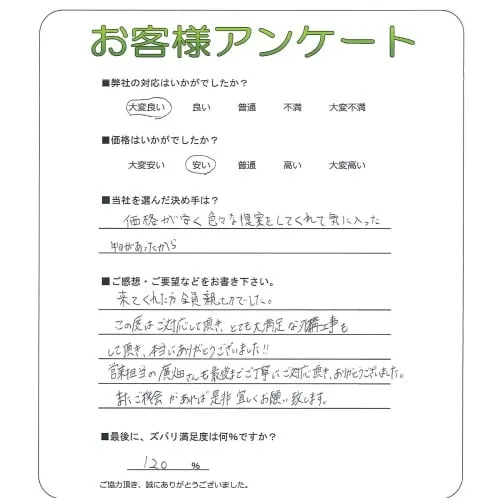 お客様アンケート
■弊社の対応はいかがでしたか？
大変良い 良い 普通 不満 大変不満
■価格はいかがでしたか？
大変安い 安い 普通 高い 大変高い
■当社を選んだ決め手は？
価格が安く色々な提案をしてくれて気に入った
があったから
■ご感想・ご要望などをお書き下さい。
来てくれた方全員親切でした。
この度はご対応して頂き、とても大満足な工事も
して頂き、本当にありがとうございました!!
営業担当の さんも最後までご丁寧にご対応頂き、ありがとうございました。
またご機会があれば是非宜しくお願い致します。
■最後に、ズバリ満足度は何%ですか？
120 %
ご協力頂き、誠にありがとうございました。